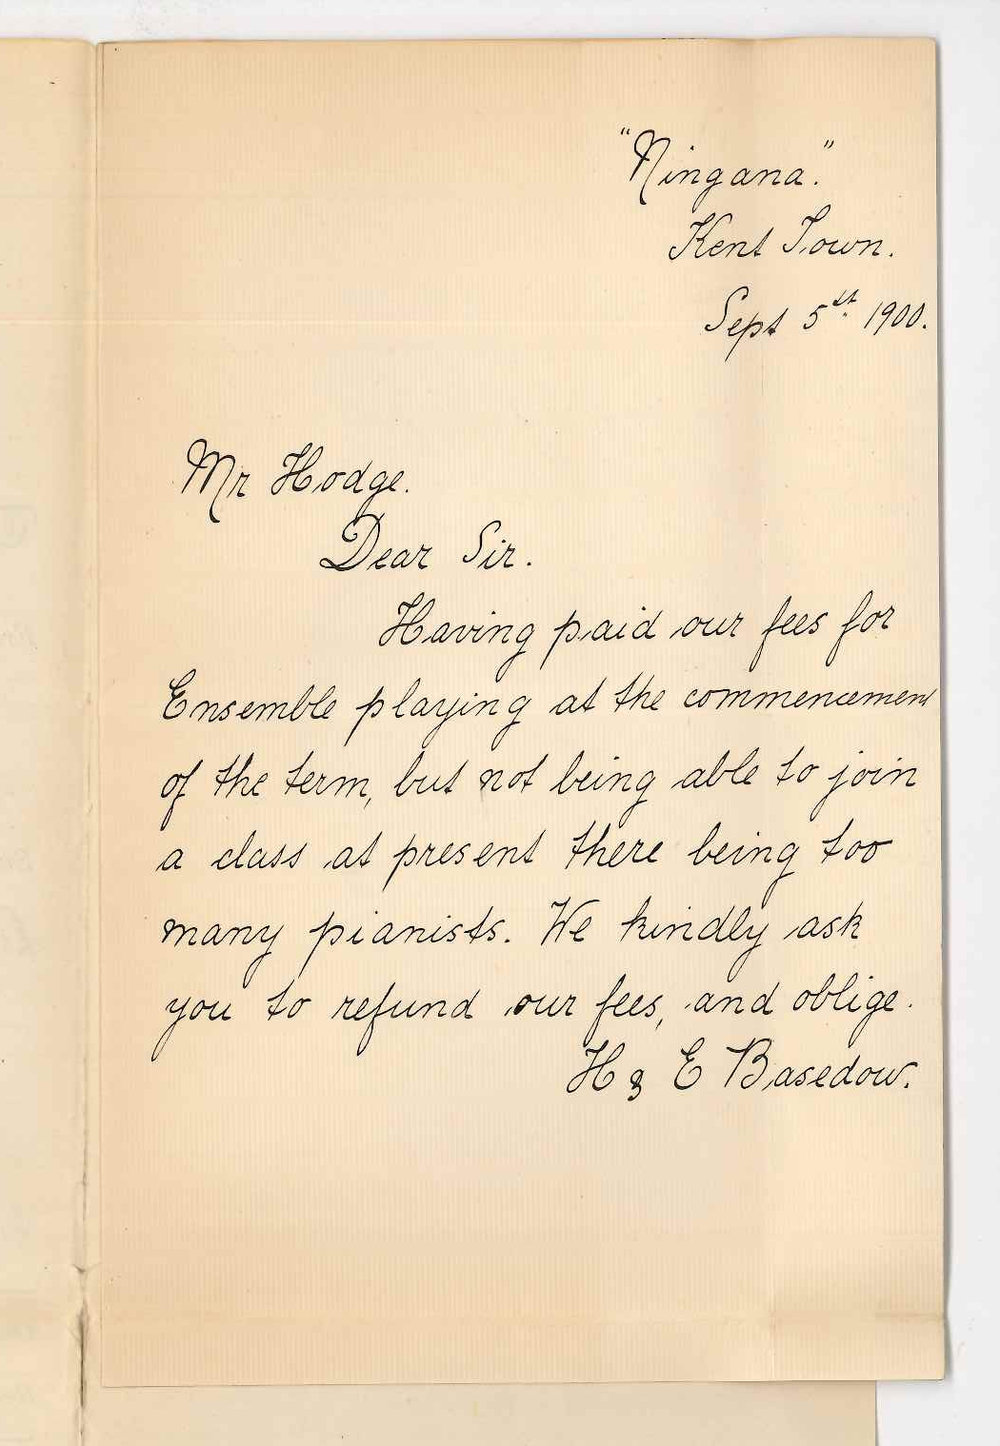 "Ningana."
Kent Town.
Sept 5th 1900.
Mr Hodge.
Dear Sir.
Having paid our fees for
Ensemble playing at the commencement
of the term, but not being able to join
a class at present there being too
many pianists. We kindly ask
you to refund our fees, and oblige.
H & E Basedow.